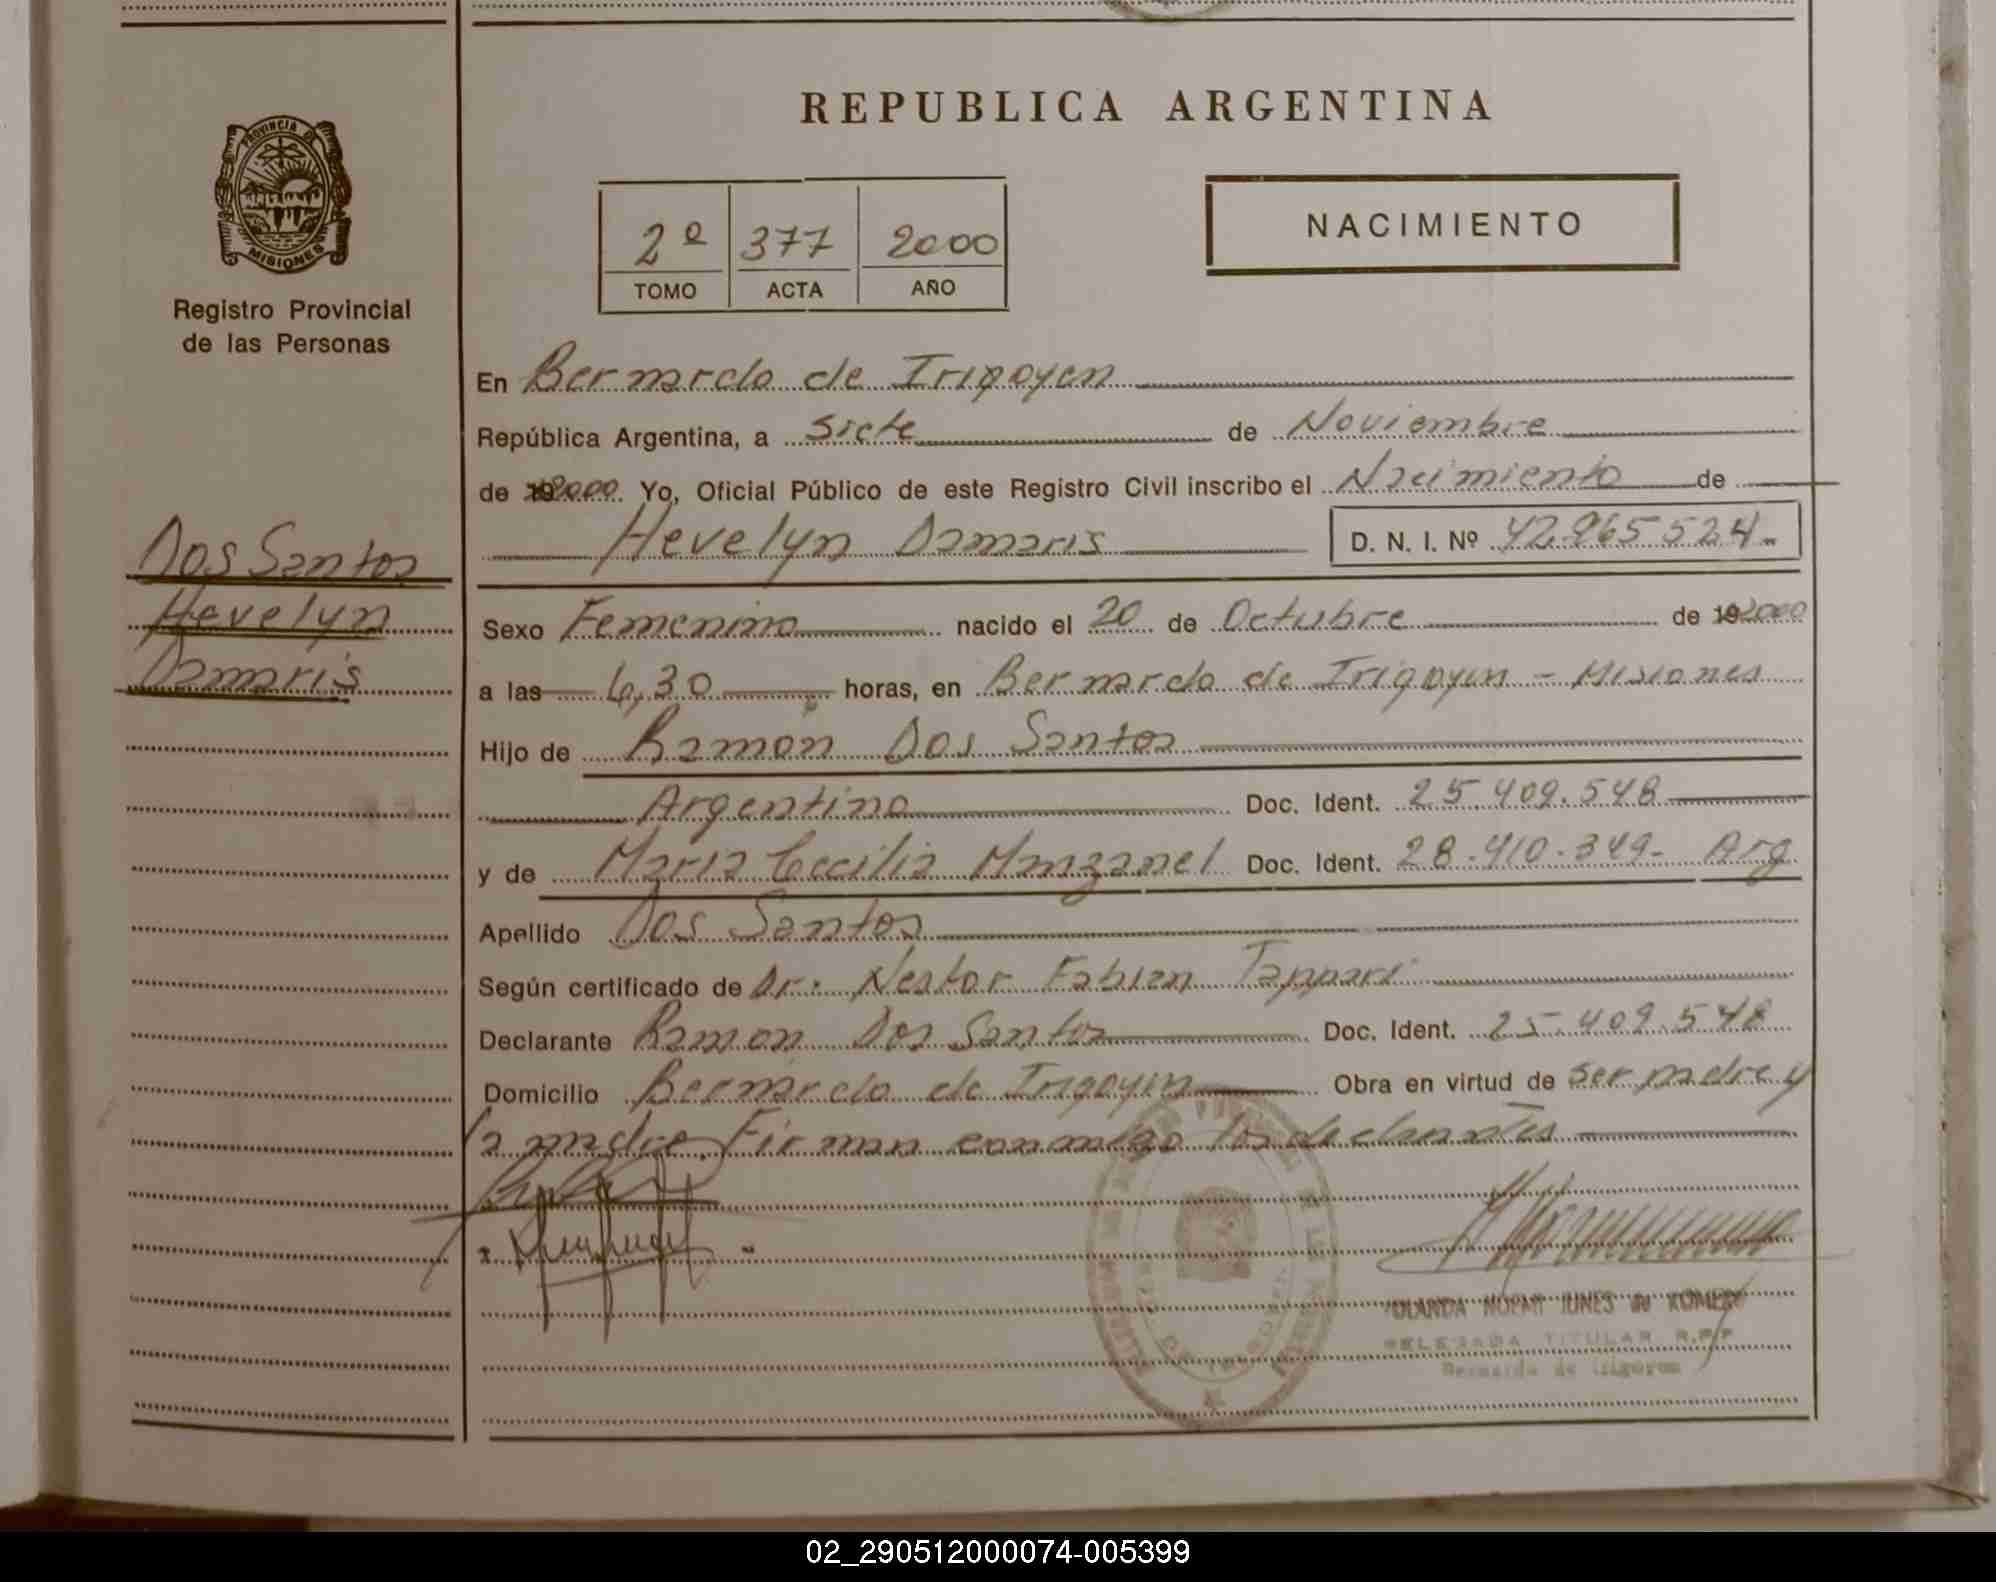 REPUBLICA ARGENTINA
PROVINCIA DE
MISIONES
Registro Provincial
de las Personas
2º 377 2000
TOMO ACTA AÑO
NACIMIENTO
En Bernardo de Irigoyen
República Argentina, a Siete de Noviembre
de 2000 Yo, Oficial Público de este Registro Civil inscribo el Nacimiento de
Hevelyn Damaris D. N. I. Nº 42.965.524.-
Dos Santos
Hevelyn
Damaris
Sexo Femenino nacido el 20 de Octubre de 19 2000
a las 6,30 horas, en Bernardo de Irigoyen - Misiones
Hijo de Ramón Dos Santos
Argentino Doc. Ident. 25.409.548
y de Maria Cecilia Manzanel Doc. Ident. 28.410.349- Arg
Apellido Dos Santos
Según certificado de Dr. Nestor Fabian Tappari
Declarante Ramon Dos Santos Doc. Ident. 25.409.548
Domicilio Bernardo de Irigoyen Obra en virtud de ser padre y
la madre. Firman conmigo los declarantes
YOLANDA NOEMI JUNES de ROMERO
DELEGADA TITULAR R.P.P
Bernardo de Irigoyen
02_290512000074-005399